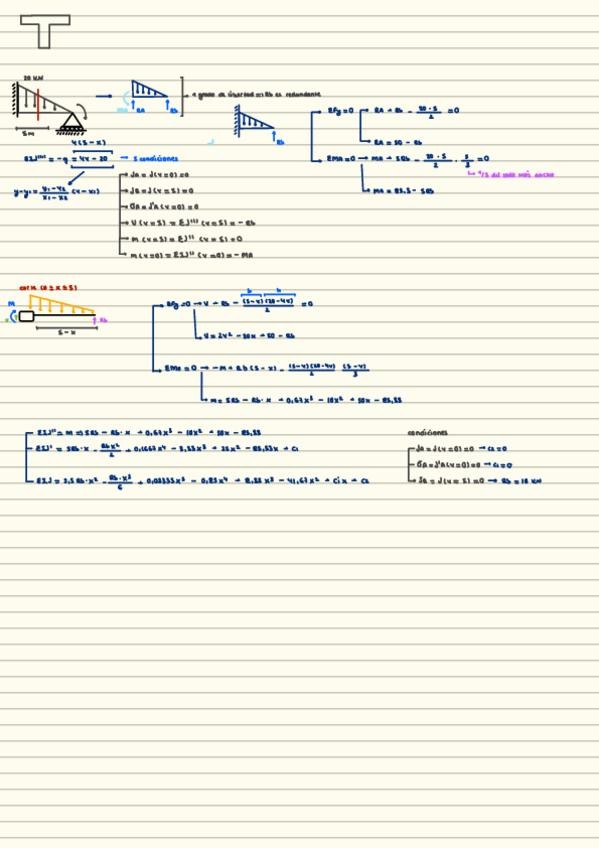 20 KN
5m
MA
RA
Rb
1 grado de libertad => Rb es redundante
Rb
ΣFy=0 → RA + Rb - 20·5/2 = 0
RA = 50 - Rb
ΣMA=0 → MA + 5Rb - 20·5/2 · 5/3 = 0
1/3 del lado más ancho
MA = 83,3 - 5Rb
4(5-x)
EIJ'''' = -q = 4x - 20 → 5 condiciones
y-y1 = y1-y2/x1-x2 (x-x1)
JA = J(x=0)=0
JB = J(x=5)=0
ΘA = J'A(x=0)=0
V(x=5) = EJ'''(x=5) = -Rb
M(x=5) = EJ''(x=5)=0
M(x=0) = EIJ''(x=0) = -MA
corte (0≤x≤5)
M
Rb
5-x
b
h
ΣFy=0 → V + Rb - (5-x)(20-4x)/2 = 0
V = 2x² - 20x + 50 - Rb
ΣMo=0 → -M + Rb(5-x) - (5-x)(20-4x)/2 (5-x)/3
M = 5Rb - Rb·x + 0,67x³ - 10x² + 50x - 83,33
EIJ'' = M => 5Rb - Rb·x + 0,67x³ - 10x² + 50x - 83,33
EIJ' = 5Rb·x - Rbx²/2 + 0,1667x⁴ - 3,33x³ + 25x² - 83,33x + C1
EIJ = 2,5Rb·x² - Rb·x³/6 + 0,03333x⁵ - 0,83x⁴ + 8,33x³ - 41,67x² + C1x + C2
condiciones
JA = J(x=0)=0 → C2=0
ΘA = J'A(x=0)=0 → C1=0
JB = J(x=5)=0 → Rb = 10 KN